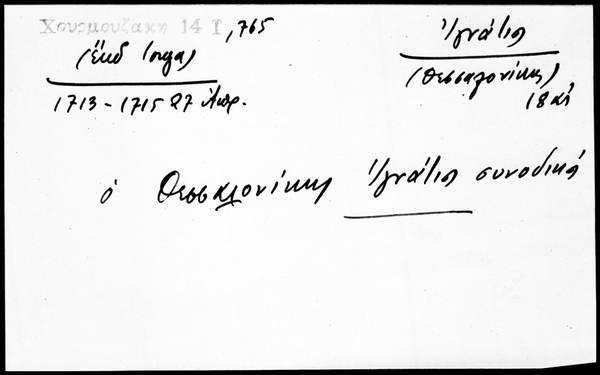 Χουρμουζάκη 14 I, 765
(ἔκδ Ιοργα)
1713 - 1715 27 Ἀπρ.
Ἰγνάτιος
(Θεσσαλονίκης)
18 αἰ
ὁ Θεσσαλονίκης Ἰγνάτιος συνοδικός